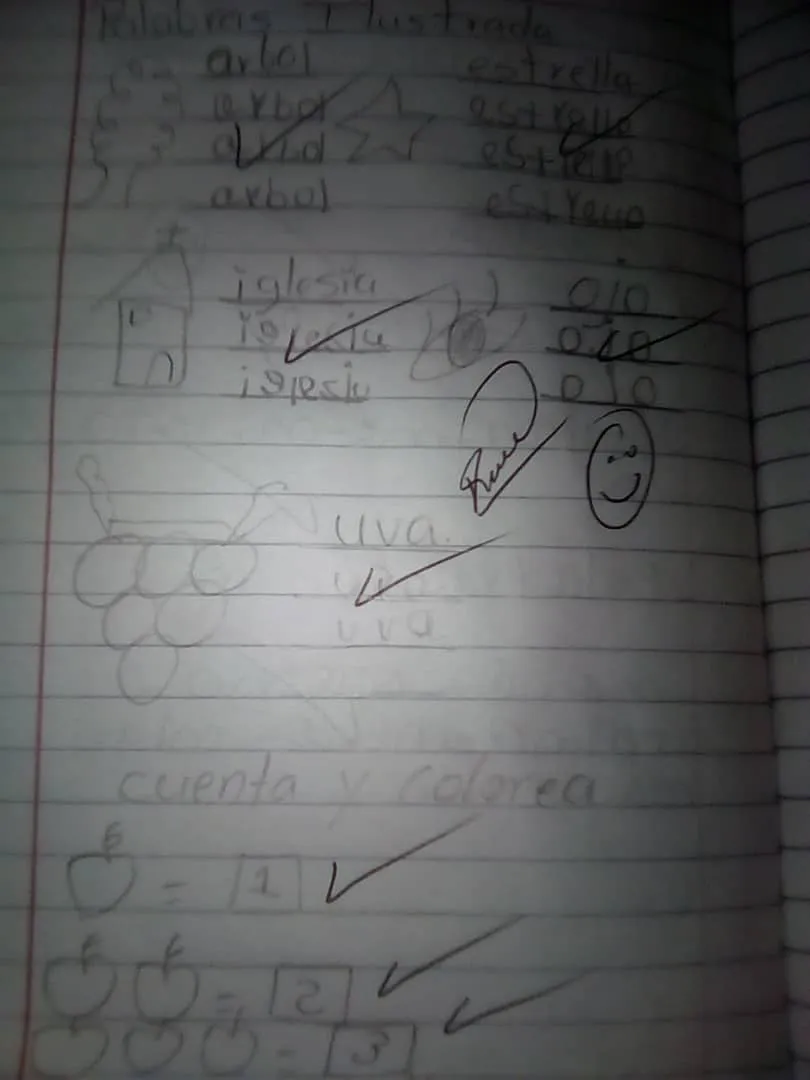 Palabras Ilustrada
arbol estrella
arbol estrella
arbol
arbol
iglesia ojo
iglesia ojo
iglesia ojo
uva.
uva
uva
cuenta y colorea
= 1
= 2
= 3